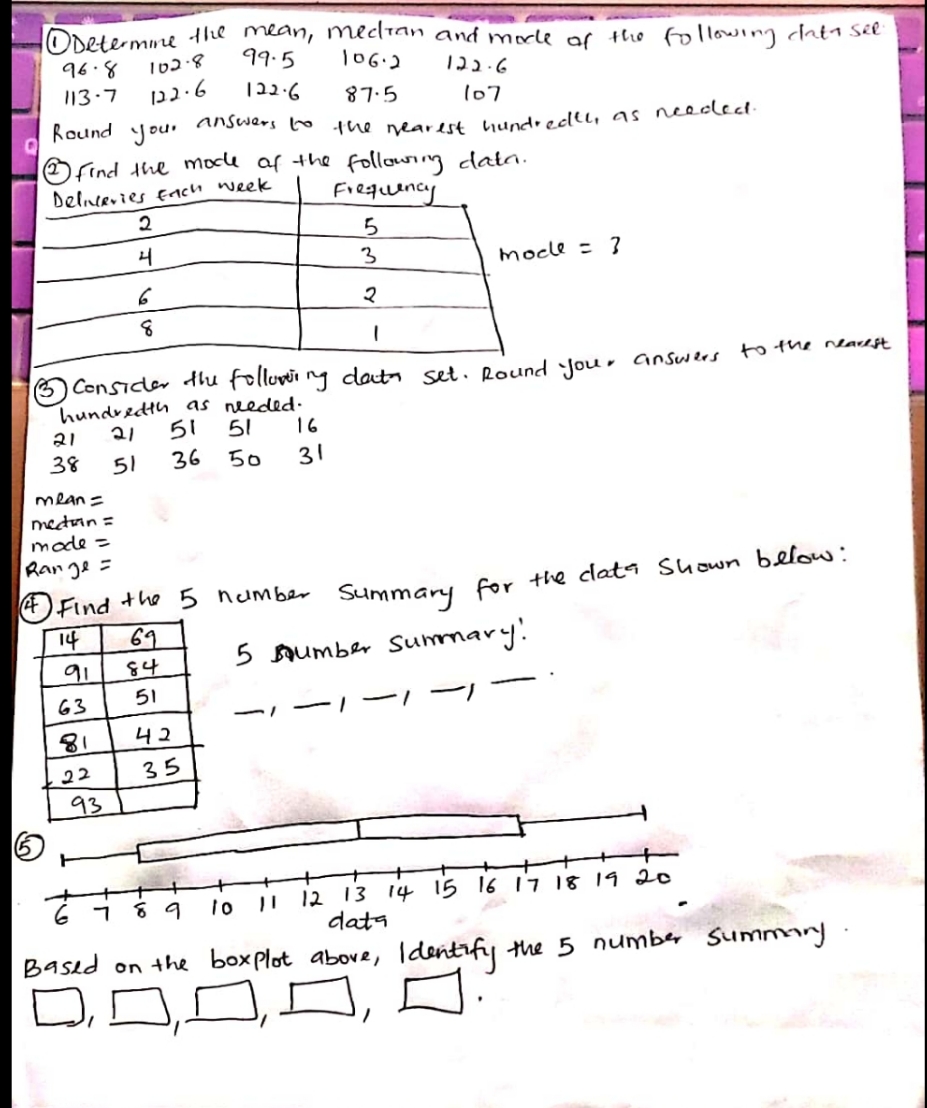 ① Determine the mean, median and mode of the following data set
96.8 102.8 99.5 106.2 122.6
113.7 122.6 122.6 87.5 107
Round your answers to the nearest hundredth, as needed.
② find the mode of the following data.
Deliveries Each week Frequency
2 5
4 3
mode = ?
6 2
8 1
③ Consider the following data set. Round your answers to the nearest
hundredth as needed.
21 21 51 51 16
38 51 36 50 31
mean =
median =
mode =
Range =
④ Find the 5 number summary for the data shown below:
14 69
5 number summary:
91 84
63 51
_, _, _, _, _.
81 42
22 35
93
⑤
6 7 8 9 10 11 12 13 14 15 16 17 18 19 20
data
Based on the boxplot above, Identify the 5 number summary.